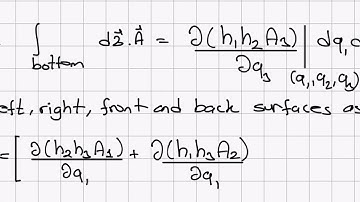 ∫_bottom dƨ⃗.A⃗ = ∂(h₁h₂A₃)/∂q₃ |_(q₁,q₂,q₃) dq₁
left, right, front and back surfaces as
= [ ∂(h₂h₃A₁)/∂q₁ + ∂(h₁h₃A₂)/∂q₁